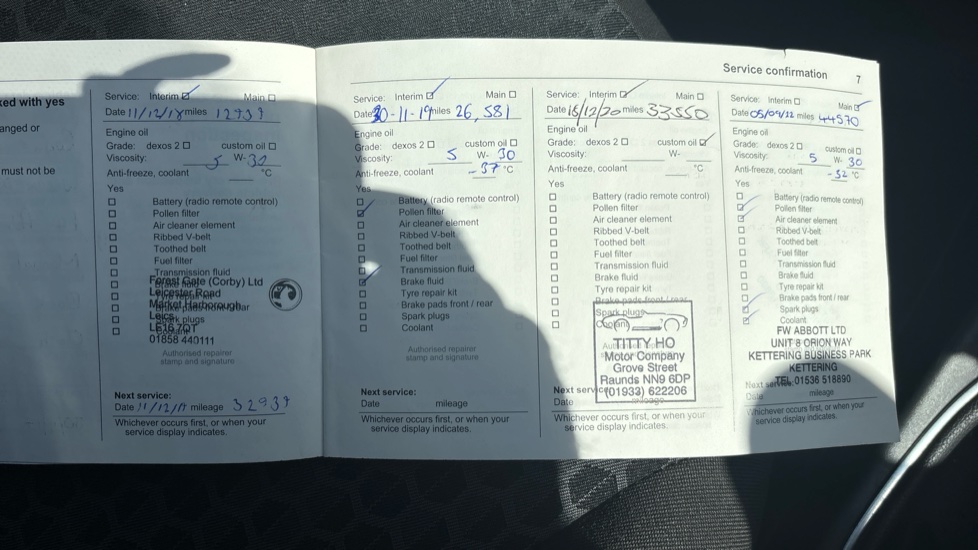 Service confirmation 7
ked with yes
anged or
must not be
Service: Interim Main
Date 11/12/18 miles
Engine oil
Grade: dexos 2 custom oil
Viscosity: 5 W- 30
Anti-freeze, coolant °C
Yes
Battery (radio remote control)
Pollen filter
Air cleaner element
Ribbed V-belt
Toothed belt
Fuel filter
Transmission fluid
Brake fluid
Tyre repair kit
Brake pads front / rear
Spark plugs
Coolant
Forest Gate (Corby) Ltd
Leicester Road
Market Harborough
Leics
LE16 7QT
01858 440111
Authorised repairer
stamp and signature
Next service:
Date 11/12/19 mileage 32937
Whichever occurs first, or when your
service display indicates.
Service: Interim Main
Date 30-11-19 miles 26,581
Engine oil
Grade: dexos 2 custom oil
Viscosity: 5 W- 30
Anti-freeze, coolant -37 °C
Yes
Battery (radio remote control)
Pollen filter
Air cleaner element
Ribbed V-belt
Toothed belt
Fuel filter
Transmission fluid
Brake fluid
Tyre repair kit
Brake pads front / rear
Spark plugs
Coolant
Authorised repairer
stamp and signature
Next service:
Date mileage
Whichever occurs first, or when your
service display indicates.
Service: Interim Main
Date 16/12/20 miles 33550
Engine oil
Grade: dexos 2 custom oil
Viscosity: W-
Anti-freeze, coolant °C
Yes
Battery (radio remote control)
Pollen filter
Air cleaner element
Ribbed V-belt
Toothed belt
Fuel filter
Transmission fluid
Brake fluid
Tyre repair kit
Brake pads front / rear
Spark plugs
Coolant
TITTY HO
Motor Company
Grove Street
Raunds NN9 6DP
(01933) 622206
Next service:
Date mileage
Whichever occurs first, or when your
service display indicates.
Service: Interim Main
Date 05/09/22 miles 44570
Engine oil
Grade: dexos 2 custom oil
Viscosity: 5 W- 30
Anti-freeze, coolant -32 °C
Yes
Battery (radio remote control)
Pollen filter
Air cleaner element
Ribbed V-belt
Toothed belt
Fuel filter
Transmission fluid
Brake fluid
Tyre repair kit
Brake pads front / rear
Spark plugs
Coolant
FW ABBOTT LTD
UNIT 8 ORION WAY
KETTERING BUSINESS PARK
KETTERING
TEL 01536 518890
Next service:
Date mileage
Whichever occurs first, or when your
service display indicates.